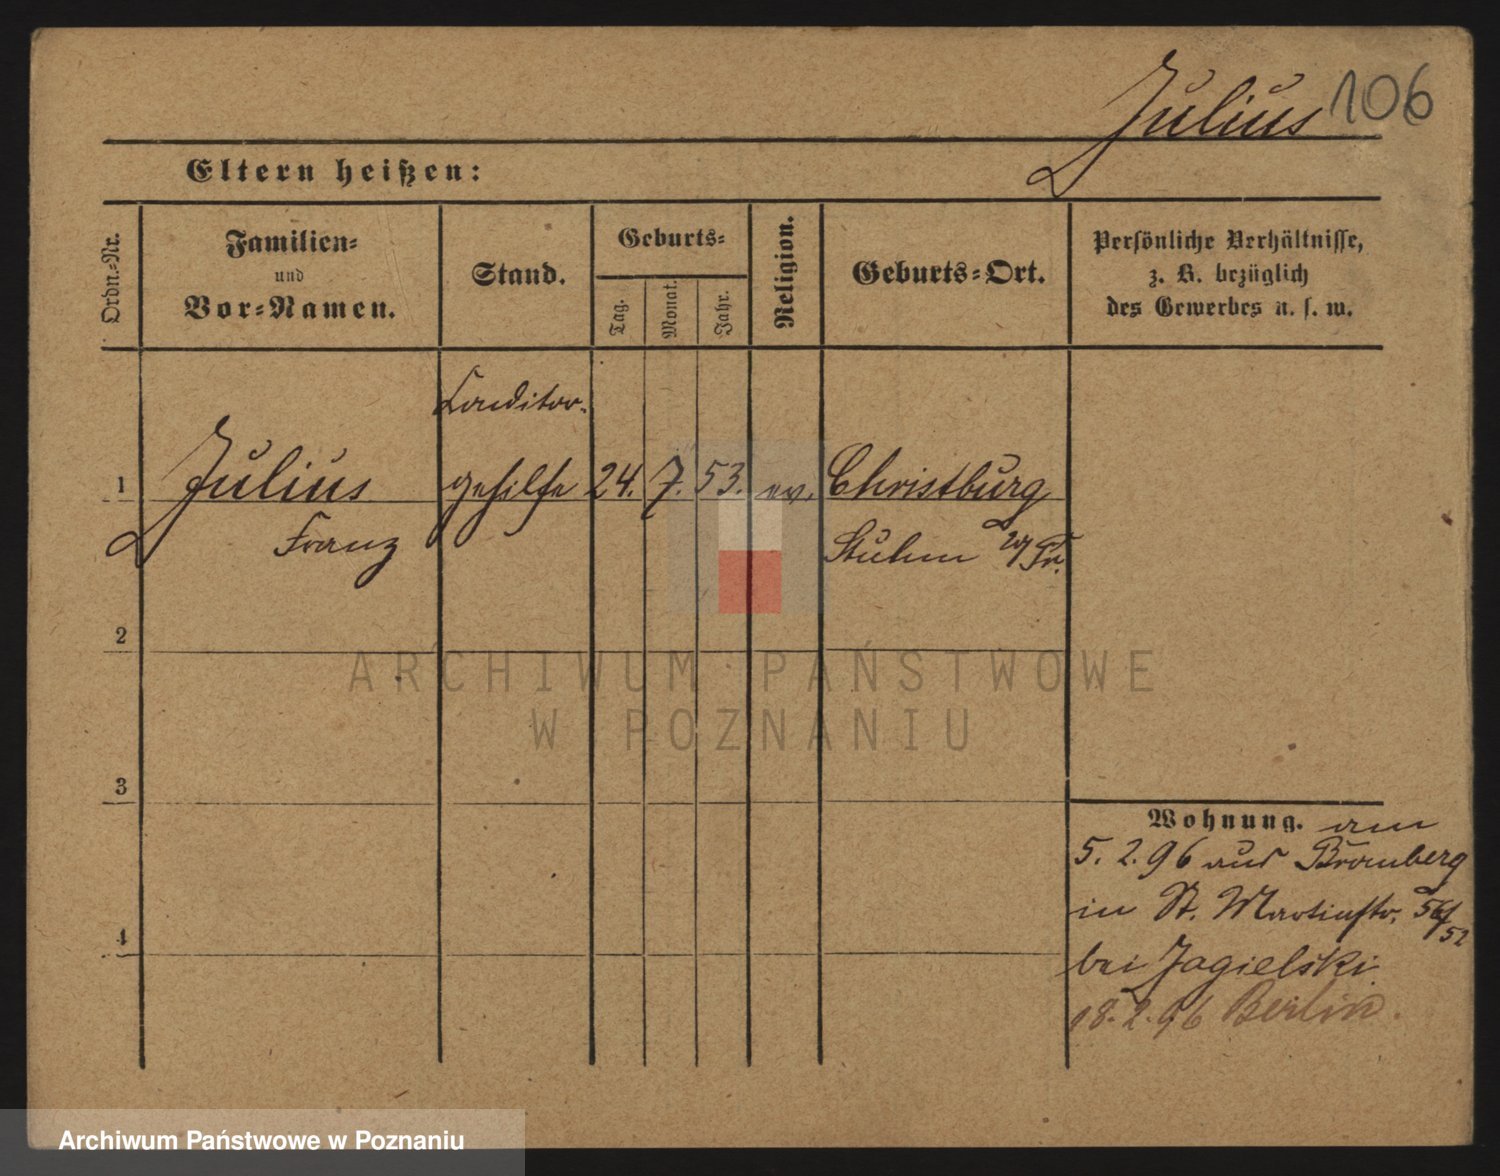 Julius 106
Eltern heißen:
Ordn.-Nr.
Familien-
und
Vor-Namen.
Stand.
Geburts-
Tag.
Monat.
Jahr.
Religion.
Geburts-Ort.
Persönliche Verhältnisse,
z. B. bezüglich
des Gewerbes u. s. w.
Conditor-
1 Julius gehilfe 24. 7. 53. ev. Christburg
Franz Stuhm W Pr.
2
3
4
Wohnung. am
5. 2. 96 aus Bromberg
in St. Martinstr. 56/
52
bei Jagielski
18. 2. 96 Berlin.
ARCHIWUM PAŃSTWOWE
W POZNANIU
Archiwum Państwowe w Poznaniu